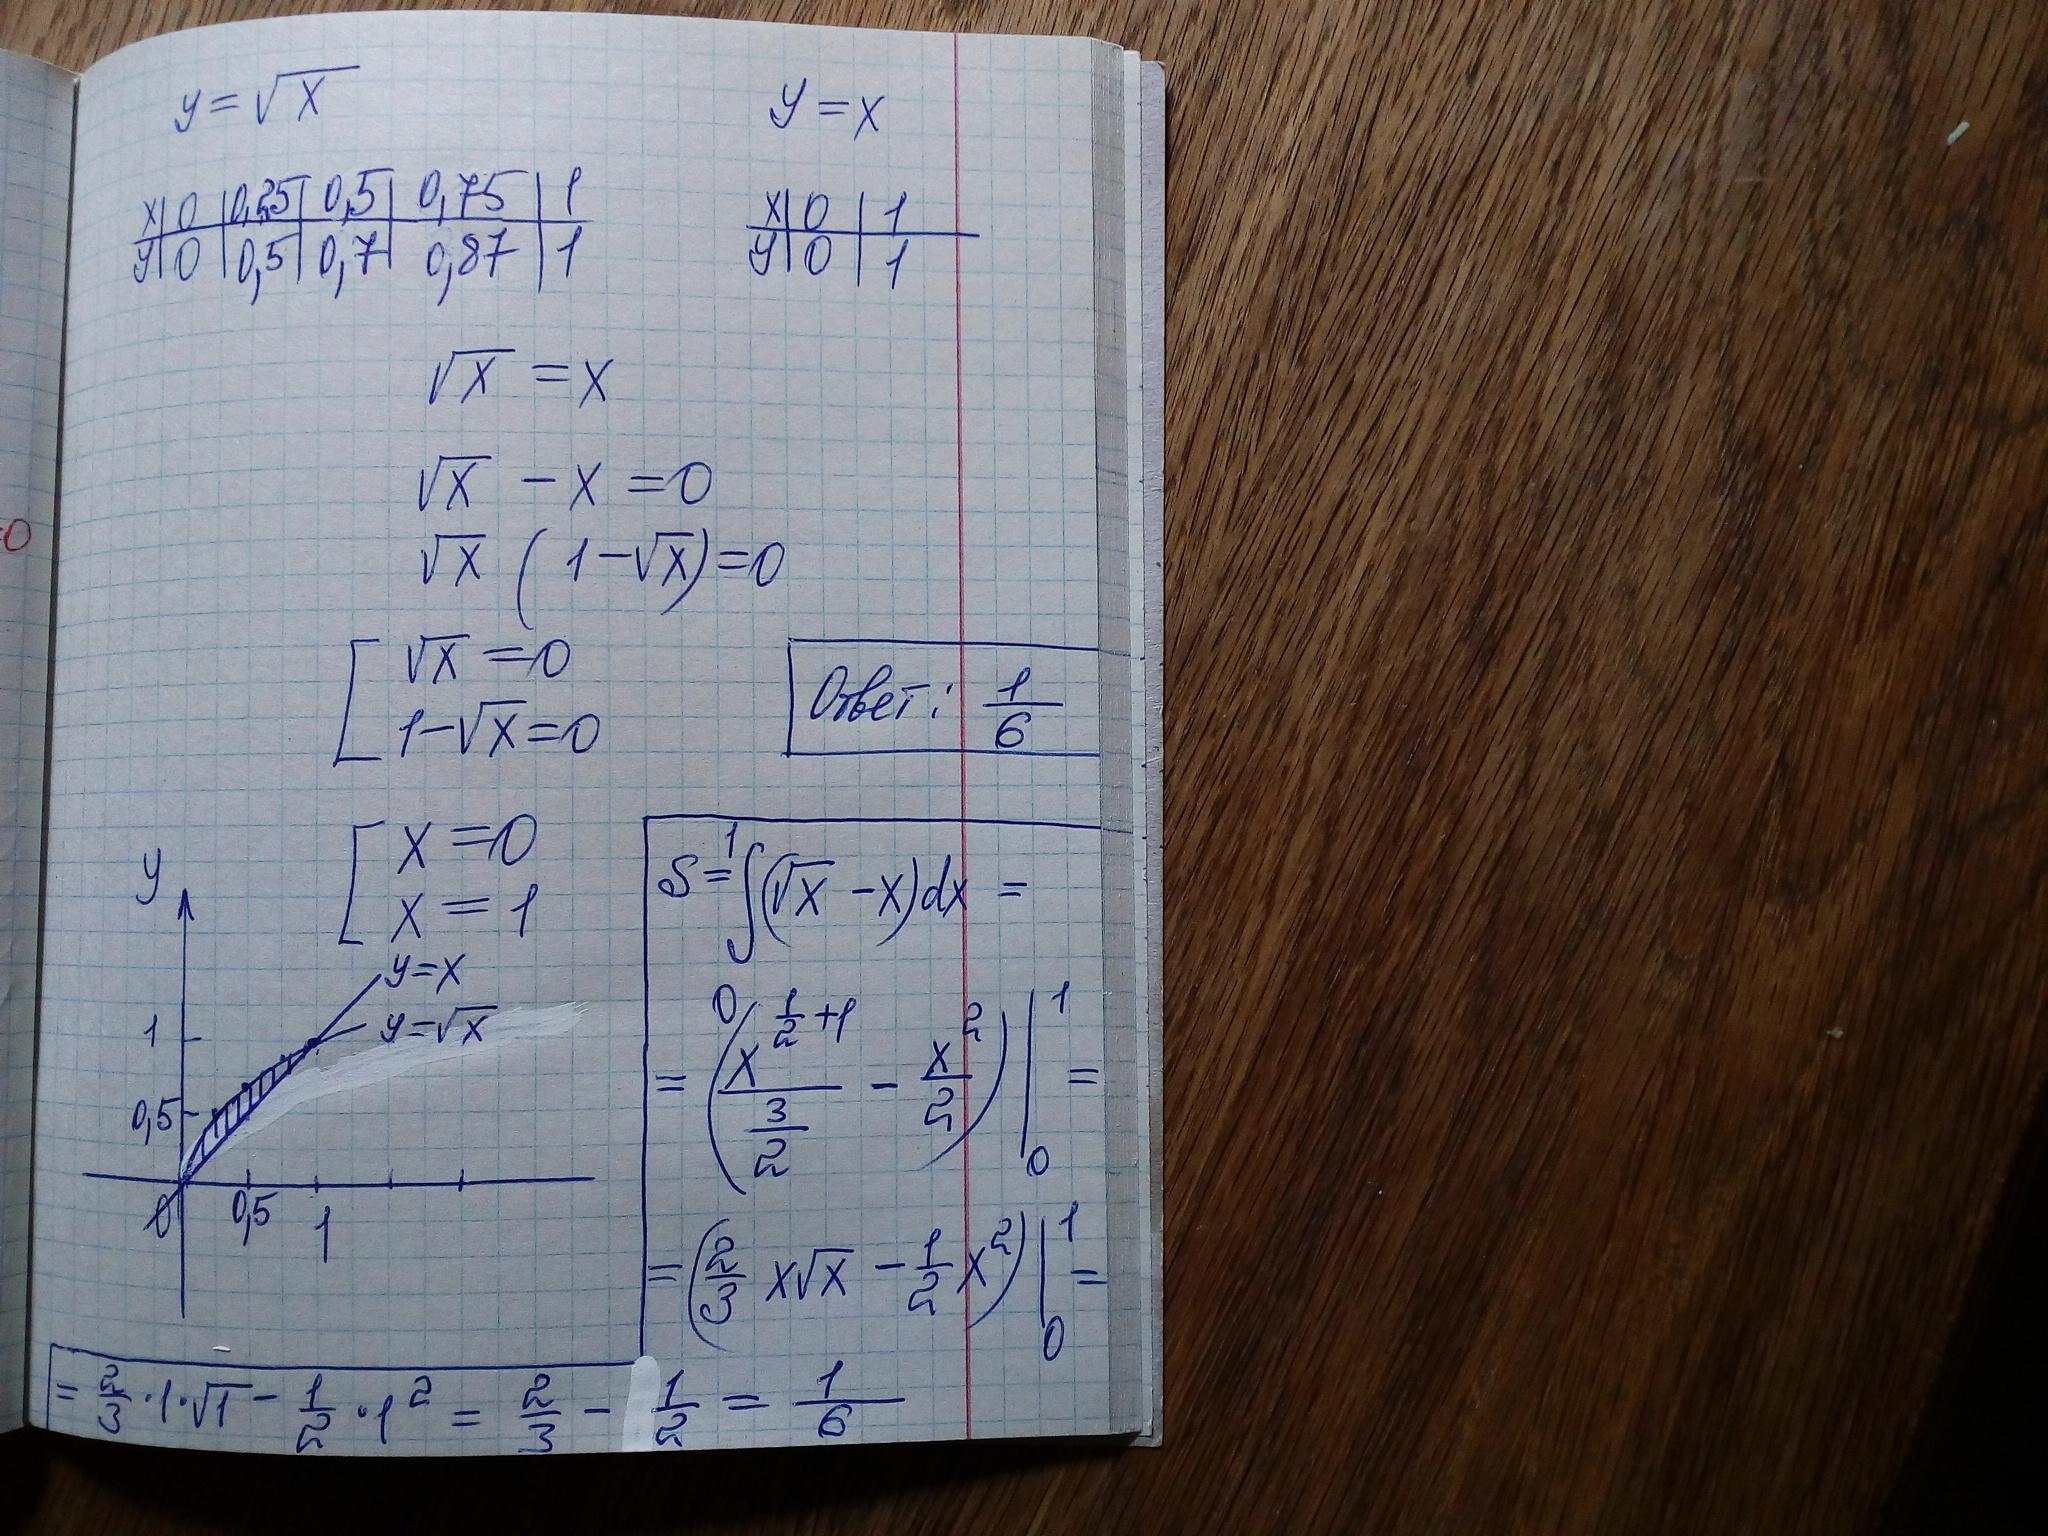 y = √x
y = x
x | 0 | 0,25 | 0,5 | 0,75 | 1
y | 0 | 0,5 | 0,7 | 0,87 | 1
x | 0 | 1
y | 0 | 1
√x = x
√x - x = 0
√x (1-√x) = 0
[ √x = 0
1-√x = 0
Ответ: 1/6
[ x = 0
x = 1
y
y = x
y = √x
1
0,5
0
0,5
1
S = ∫₀¹ (√x - x)dx =
= (x^(1/2+1) / (3/2) - x²/2) |₀¹ =
= (2/3 x√x - 1/2 x²) |₀¹ =
= 2/3 · 1 · √1 - 1/2 · 1² = 2/3 - 1/2 = 1/6
=0